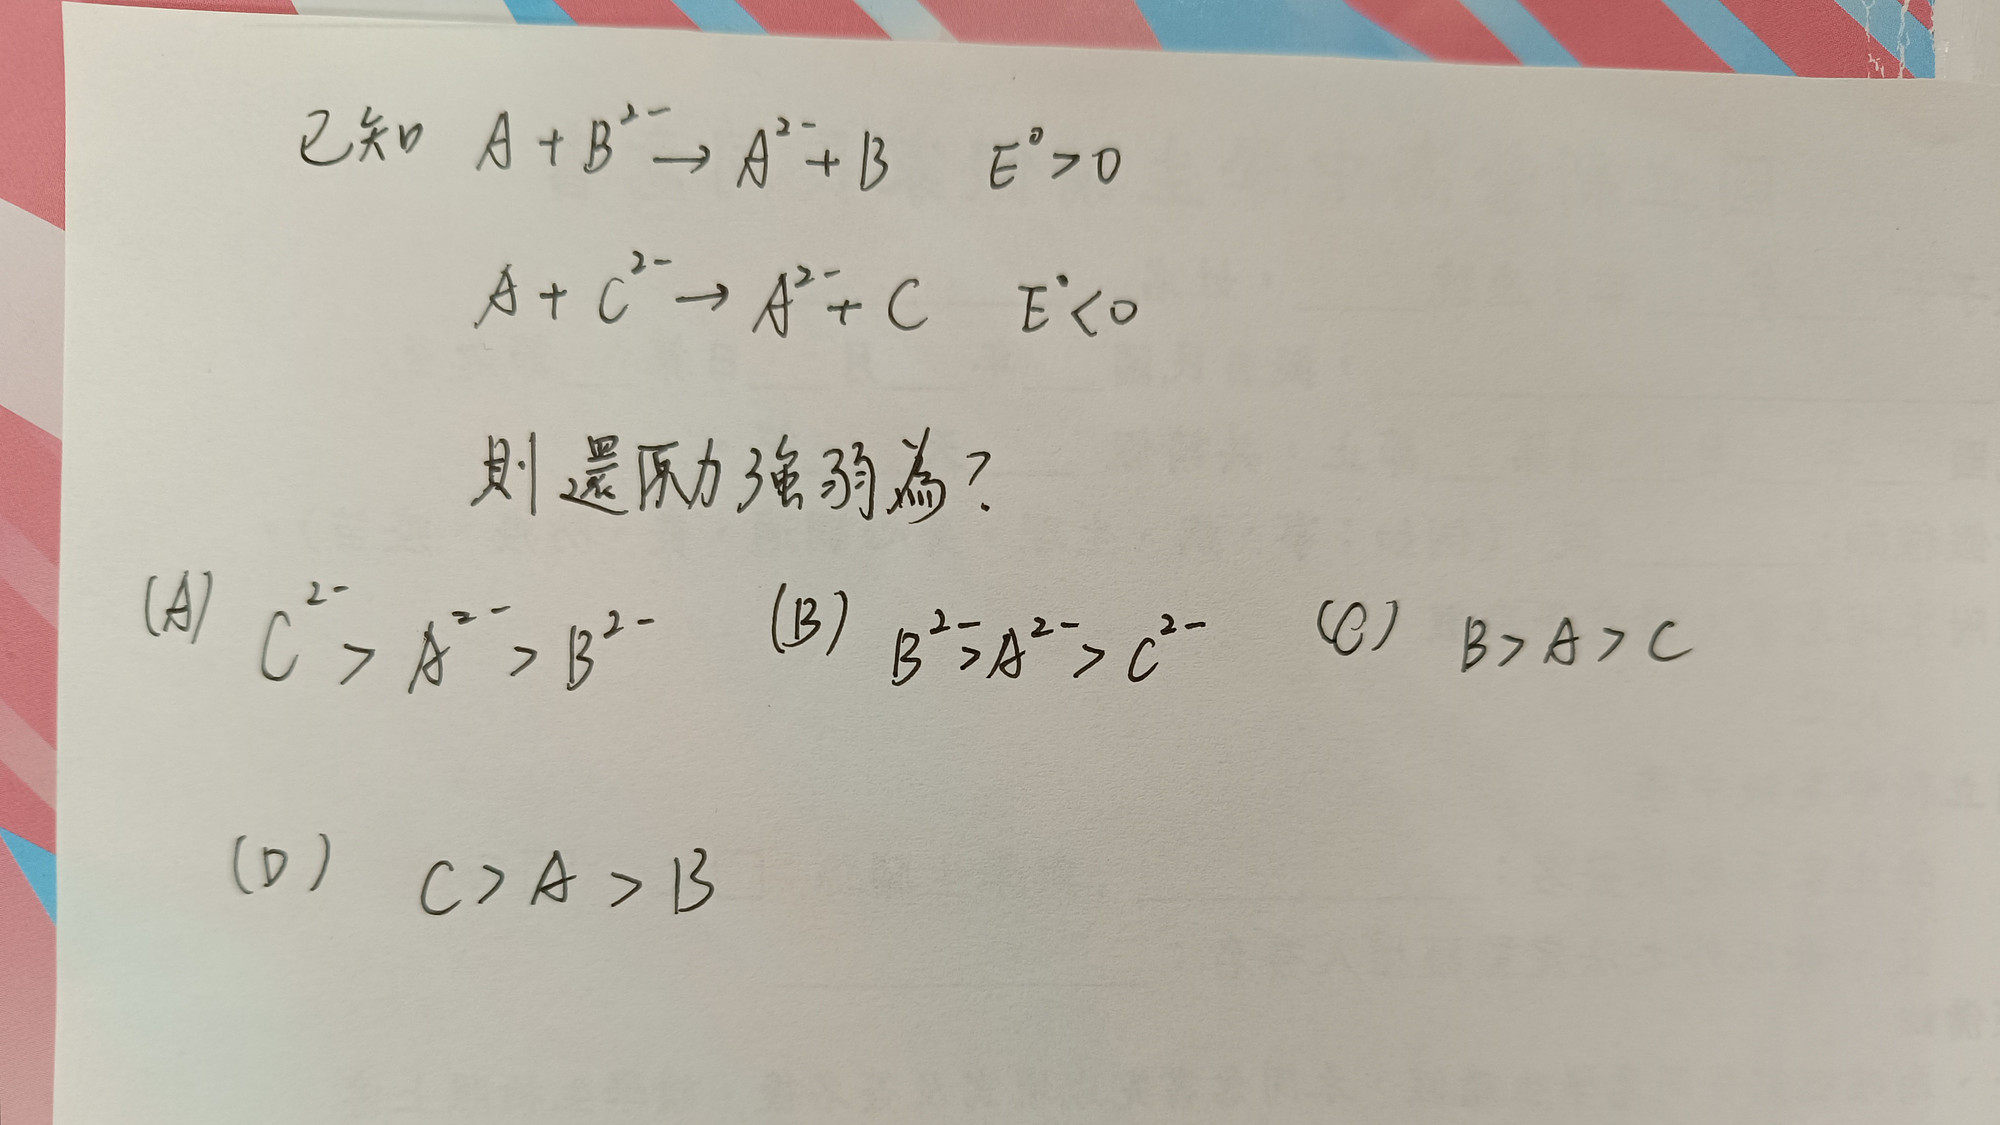 已知 A + B²⁻ → A²⁻ + B E⁰ > 0
A + C²⁻ → A²⁻ + C E° < 0
則還原力強弱為?
(A) C²⁻ > A²⁻ > B²⁻ (B) B²⁻ > A²⁻ > C²⁻ (C) B > A > C
(D) C > A > B